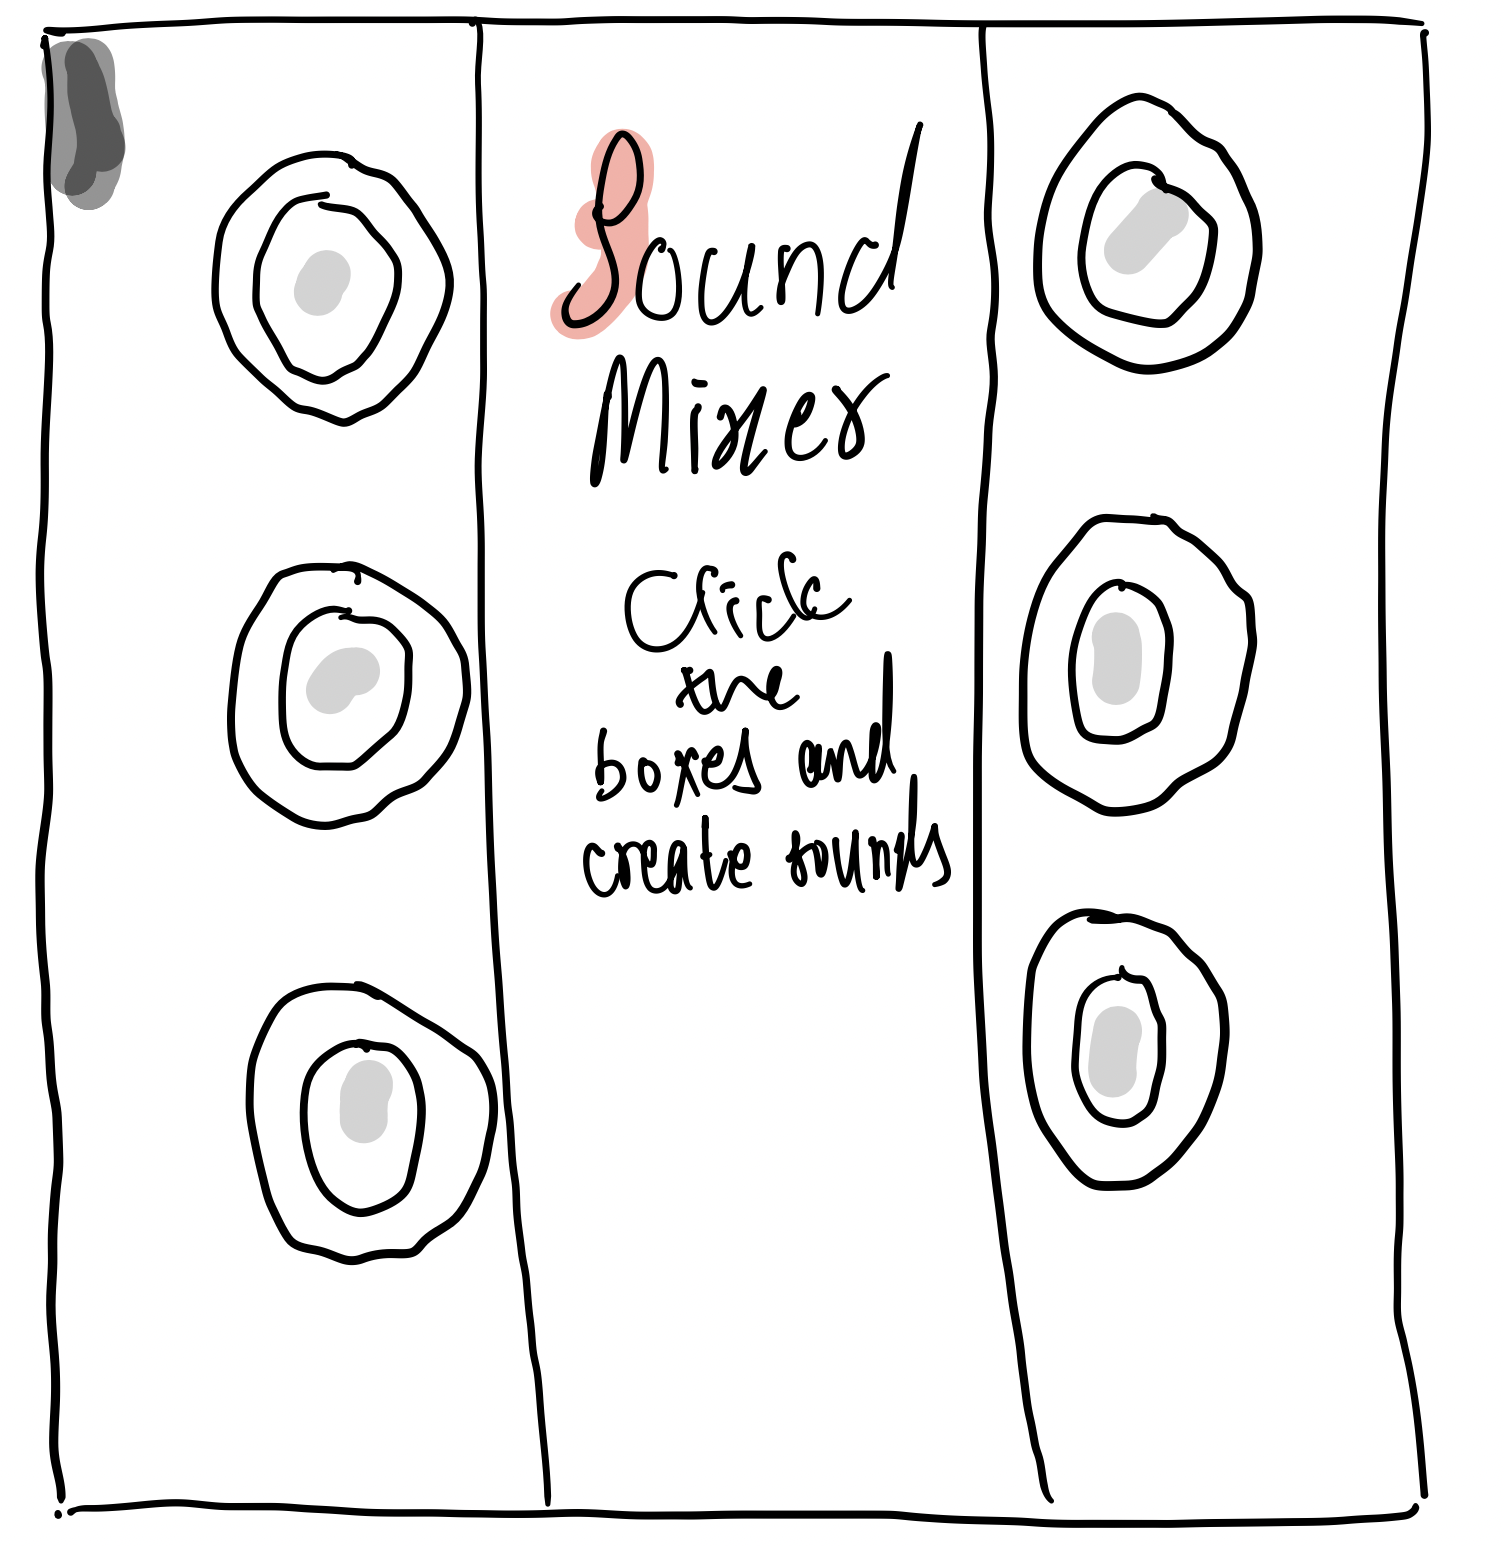 Sound
Mixer
Click
the
boxes and
create sounds